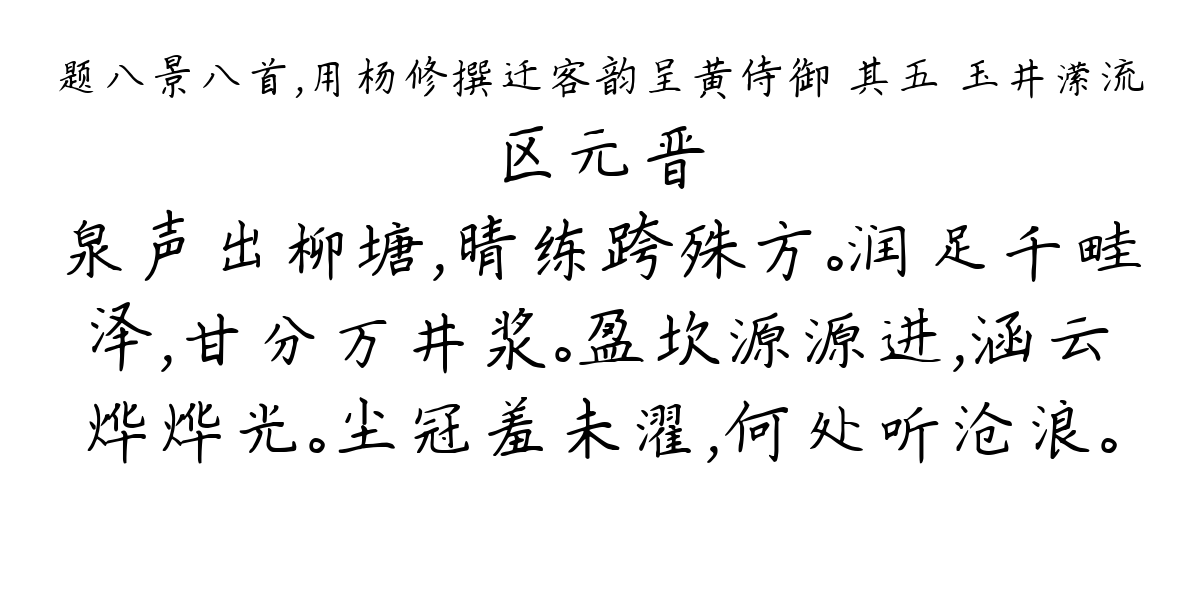 题八景八首,用杨修撰迁客韵呈黄侍御 其五 玉井潆流
区元晋
泉声出柳塘,晴练跨殊方。润足千畦
泽,甘分万井浆。盈坎源源进,涵云
烨烨光。尘冠羞未濯,何处听沧浪。